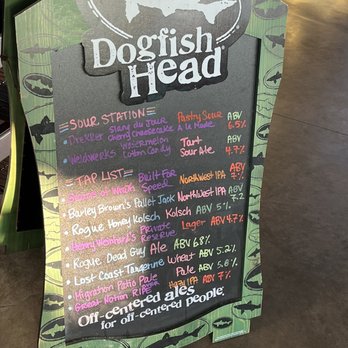 Dogfish
Head
SOUR STATION
Drekker slang du jour cherry cheesecake Pastry Sour A la Mode ABV 6.5%
Weldwerks watermelon cotton candy Tart Sour Ale ABV 4.7%
TAP LIST
Built For Speed Northwest IPA ABV 7%
Barley Brown's Pallet Jack Northwest IPA ABV 7.2
Rogue Honey Kolsch Kolsch ABV 5%
Henry Weinhard's Private Reserve Lager ABV 4.7%
Rogue Dead Guy Ale ABV 6.8%
Lost Coast Tangerine Wheat ABV 5.2%
Migration Patio Pale Pale ABV 5.6%
Great Notion RIPE Hazy IPA ABV 7%
Off-centered ales
for off-centered people.